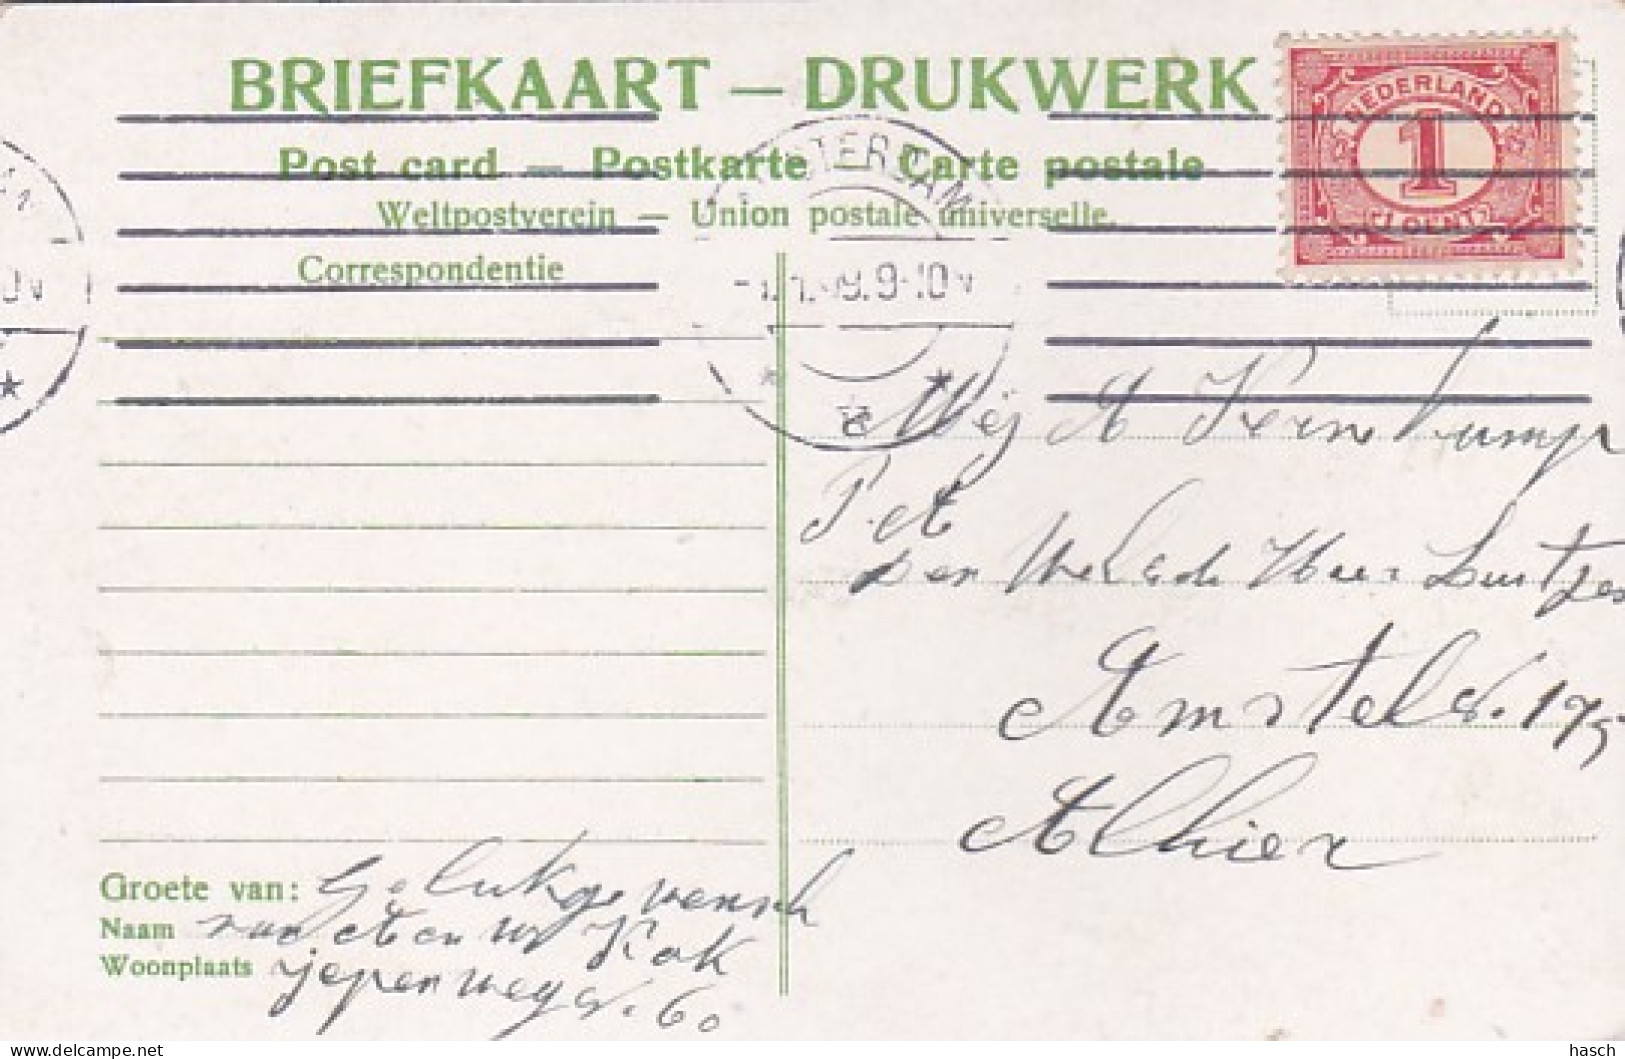 BRIEFKAART — DRUKWERK
Post card — Postkarte — Carte postale
Weltpostverein — Union postale universelle.
Correspondentie
NEDERLAND
1
1 CENT
AMSTERDAM
9-10V
Mej A Kernkamp
P. A
den Heer
Amstel 175
Alhier
Groete van: Gelukgewensch
Naam van A en W Kok
Woonplaats Ijepenweg 60
delcampe.net
hasch